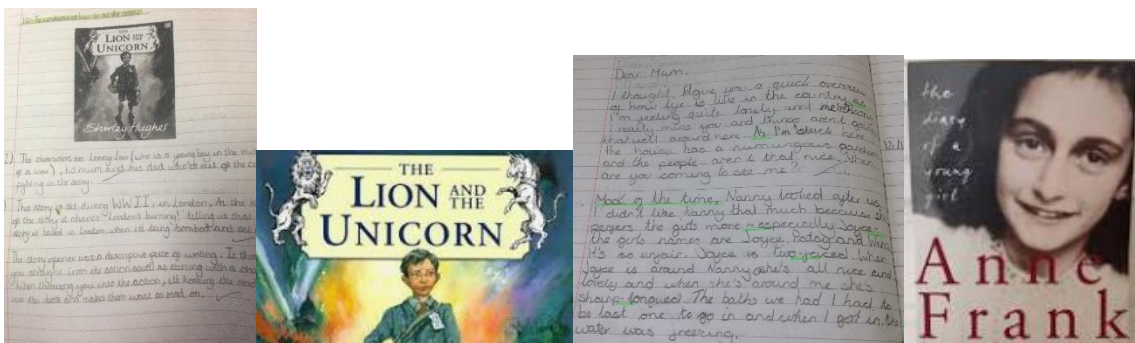 THE
LION AND THE
UNICORN
Shirley Hughes
1) The characters are Lenny Lou (who is a young boy in the
of a war), his mum and his dad who's out of the
fighting in the
The story is set during WWII, in London. At the
of the story it chants "London's burning" telling us that
story is based in London when its being bombed and
The story opener uses a descriptive piece of writing. Is
you straight into the action as well as starting with a
When throwing you into the action, it's hooking the
into the book and makes them want to read on.
THE
LION AND THE
UNICORN
Dear Mum,
I thought I gave you a quick
of how life is like in the country
I'm feeling quite lonely and
I really miss you and things aren't going
that well around here. I'm stuck here
the house has a humungous garden
and the people aren't that nice. When
are you coming to see me?
Most of the time, Nanny looked after us
didn't like Nanny that much because she
the girls more especially Joyce
the girls names are Joyce, and
It's so unfair. Joyce is two-faced. When
Joyce is around Nanny she's all nice and
lovely and when she's around me she's
sharp-tongued. The baths we had I had to
be last one to go in and when I got in, the
water was freezing.
the
diary
of a
young
girl
Anne
Frank